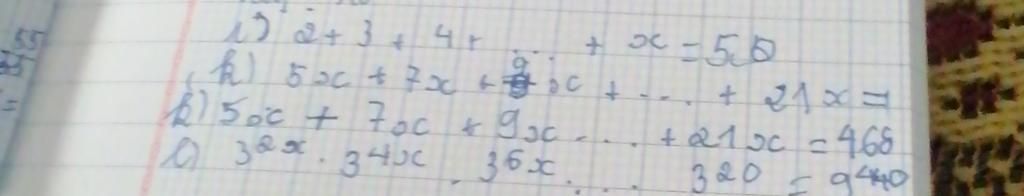 55
1) 2+3+4+ ... + x = 550
k) 5x + 7x + 9x + ... + 21x =
k) 5x + 7x + 9x ... + 21x = 468
l) 3^2x . 3^4x . 3^6x . ... 320 = 9^440